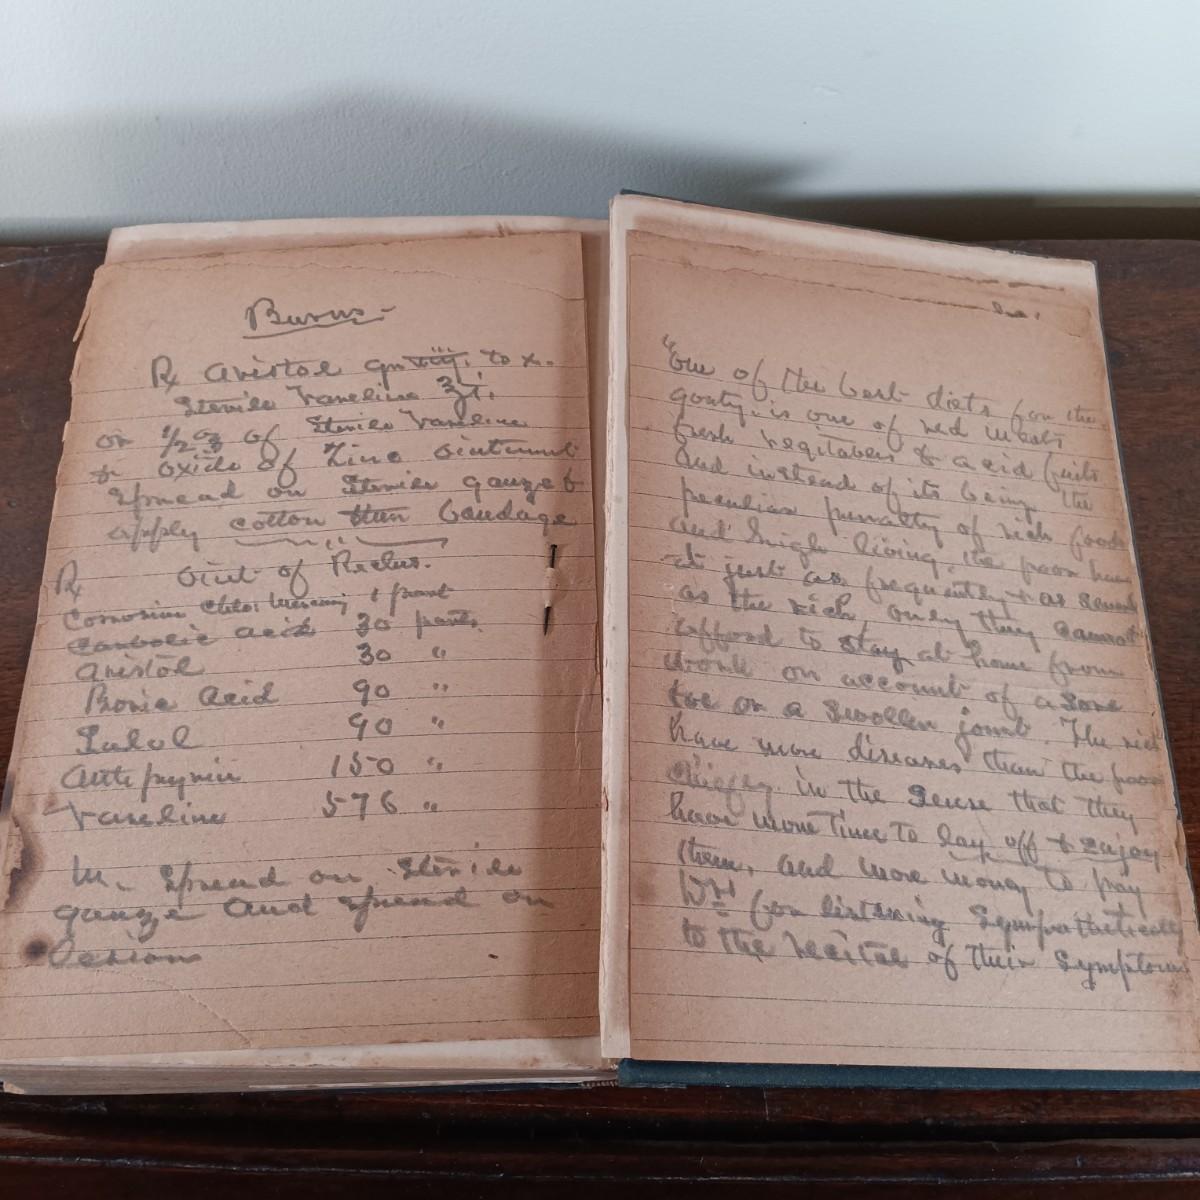 Burns-
Rx Aristol to x.
Sterile Vaseline ʒi.
or 1/2 oz of Sterile Vaseline
& oxide of Zinc ointment
Spread on Sterile gauze &
apply cotton then bandage
Rx Oint of Reclus.
Corrosive chlor Mercury 1 part
Carbolic acid 30 parts
Aristol 30 "
Boric Acid 90 "
Salol 90 "
Antipyrin 150 "
Vaseline 576 "
M. Spread on Sterile
gauze and spread on
Lesions
"One of the best diets for the
gouty, is one of red meats
fresh vegitables & acid fruits
and instead of its being the
peculiar penalty of rich foods
and high living, the poor have
it just as frequently & as severely
as the rich, only they cannot
afford to stay at home from
work on account of a sore
toe or a swollen joint. The rich
have more diseases than the poor
chiefly in the sense that they
have more time to lay off & enjoy
them, and more money to pay
for listening sympathetically
to the recital of their symptoms